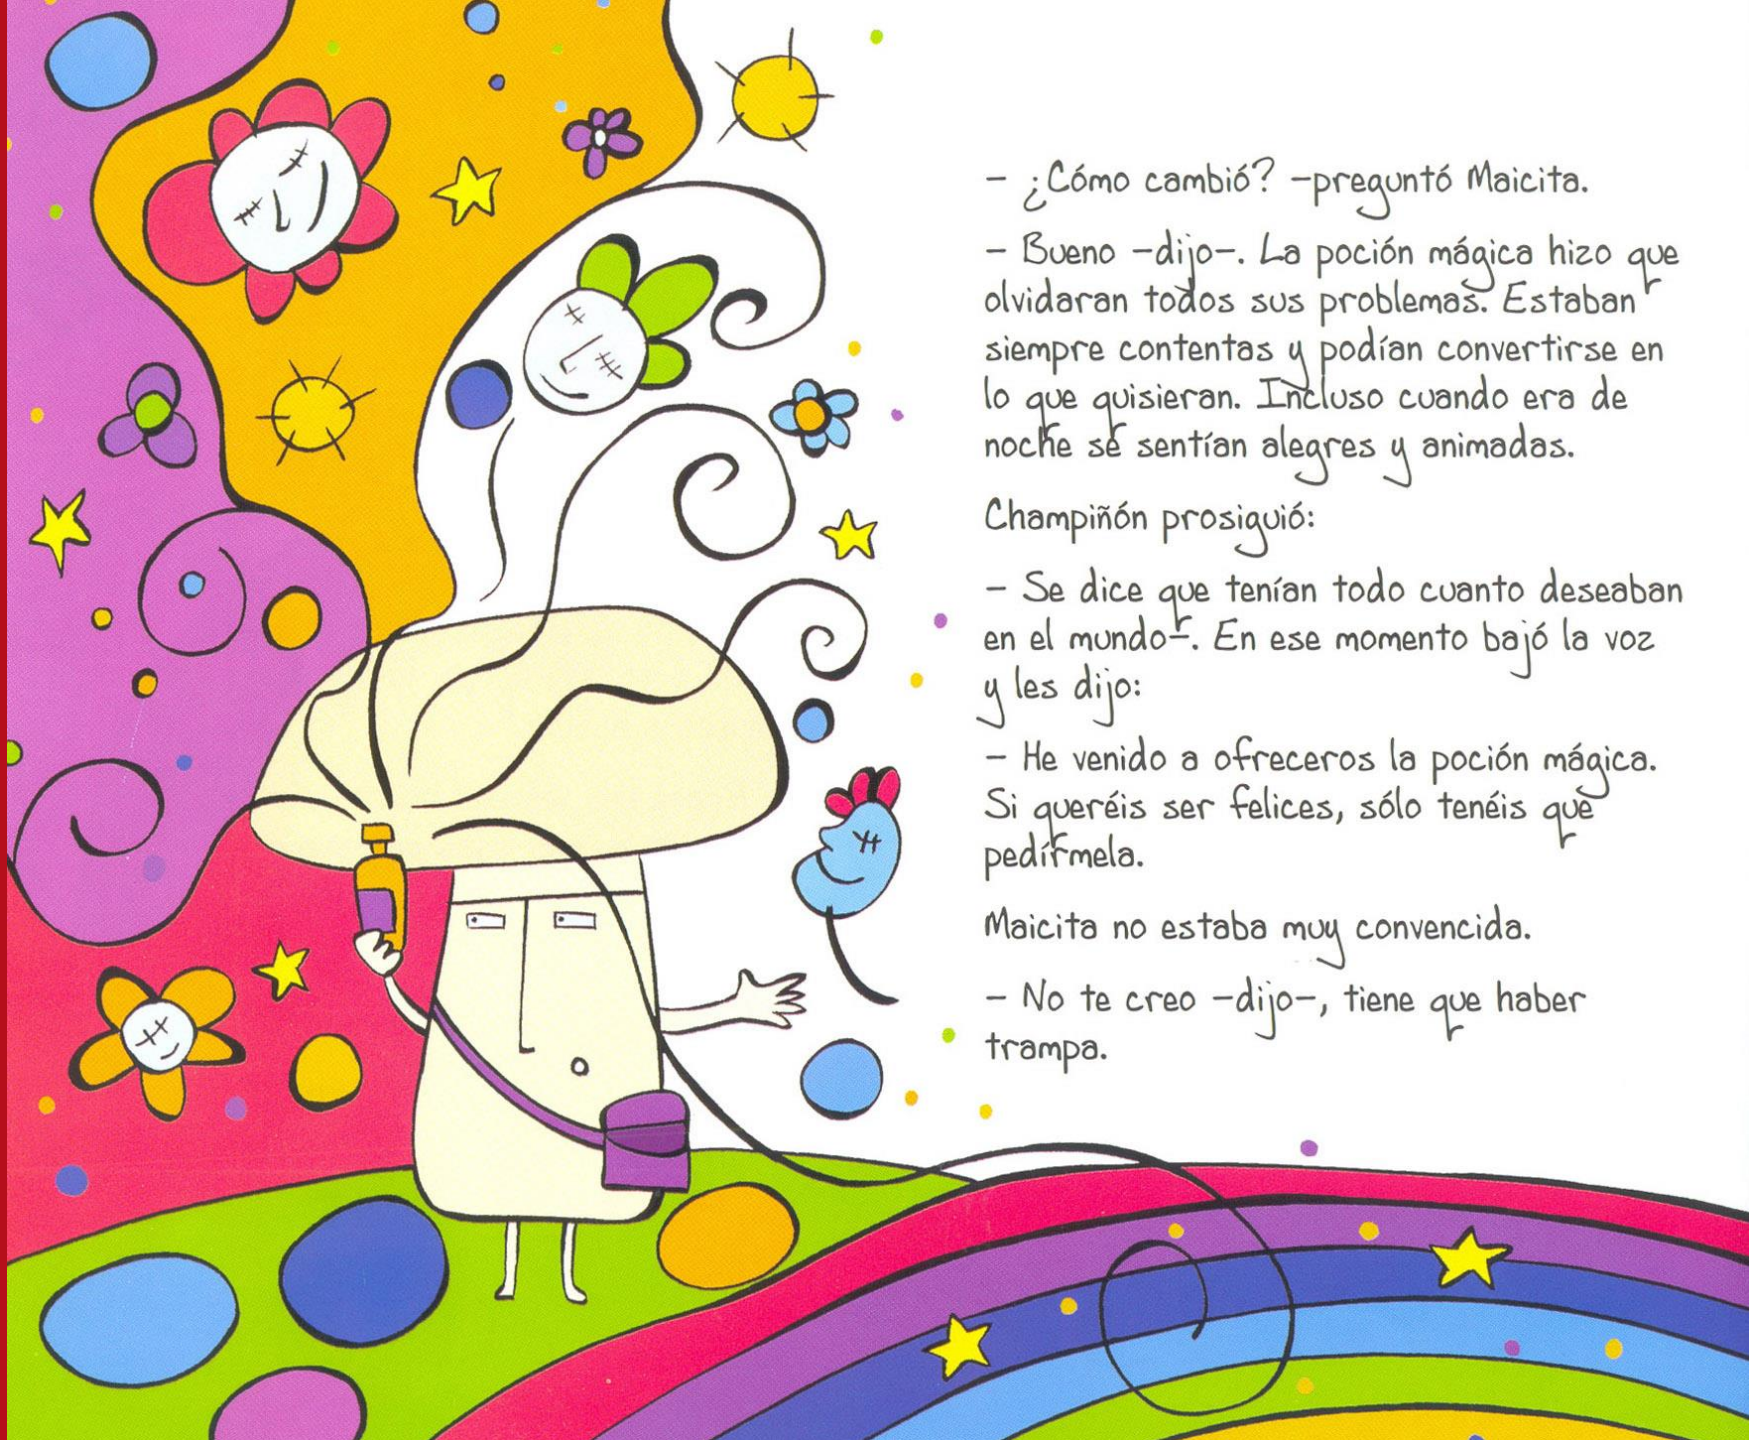 – ¿Cómo cambió? –preguntó Maicita.
– Bueno –dijo–. La poción mágica hizo que
olvidaran todos sus problemas. Estaban
siempre contentas y podían convertirse en
lo que quisieran. Incluso cuando era de
noche se sentían alegres y animadas.
Champiñón prosiguió:
– Se dice que tenían todo cuanto deseaban
en el mundo–. En ese momento bajó la voz
y les dijo:
– He venido a ofreceros la poción mágica.
Si queréis ser felices, sólo tenéis que
pedírmela.
Maicita no estaba muy convencida.
– No te creo –dijo–, tiene que haber
trampa.